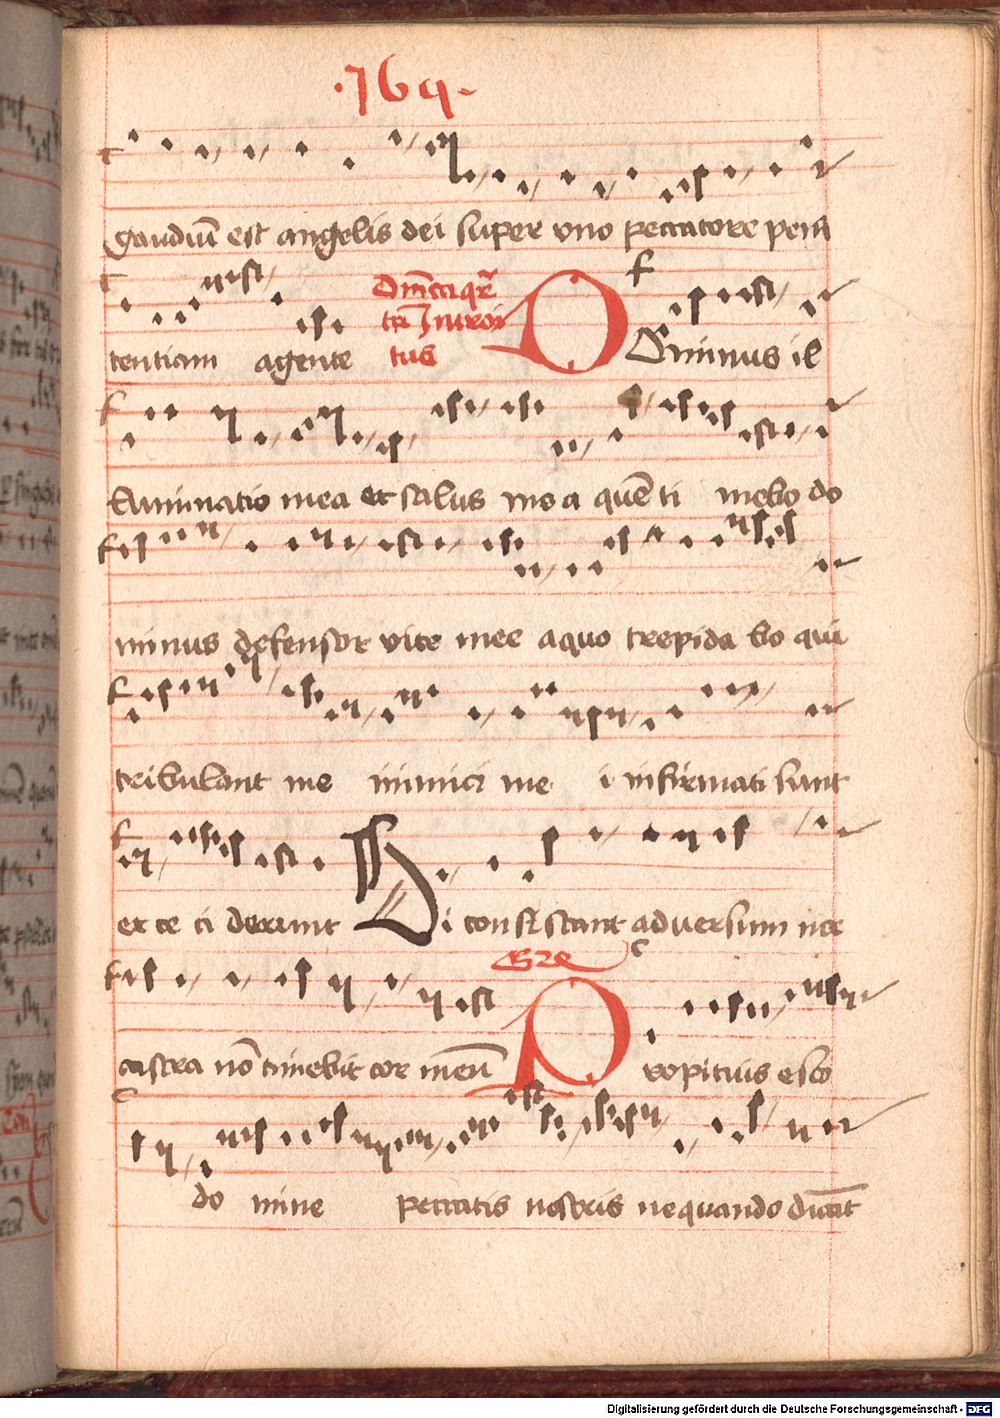 ·169·
gaudiū est angelis dei super vno peccatore peni
tentiam agente
Dn̄ica qr̄
ta Introi
tus
Dominus il
luminatio mea et salus mea quē ti mebo do
minus defensor vite mee aquo trepida bo qui
tribulant me inimici me i infirmati sunt
et ce ci derunt Si consistant adversum me
castra nō timebit cor meū
Gre
Propitius esto
do mine peccatis nostris nequando dicāt
Digitalisierung gefördert durch die Deutsche Forschungsgemeinschaft - DFG